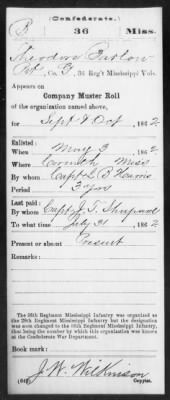 (Confederate.)
B 36 Miss.
Theodore Barlow
Pvt, Co. G, 36 Reg't Mississippi Vols.
Appears on
Company Muster Roll
of the organization named above,
for Sept & Oct, 1862
Enlisted:
When May 3, 1862
Where Corinth Miss
By whom Capt L B Harris
Period 3 yrs
Last paid:
By whom Capt J. T. Shepard
To what time July 31, 1862
Present or absent Present
Remarks:
The 36th Regiment Mississippi Infantry was organized as
the 29th Regiment Mississippi Infantry but the designation
was soon changed to 36th Regiment Mississippi Infantry,
that number by which it was known
the Confederate War Department.
Book mark:
J. W. Wilkinson
(642) Copyist.